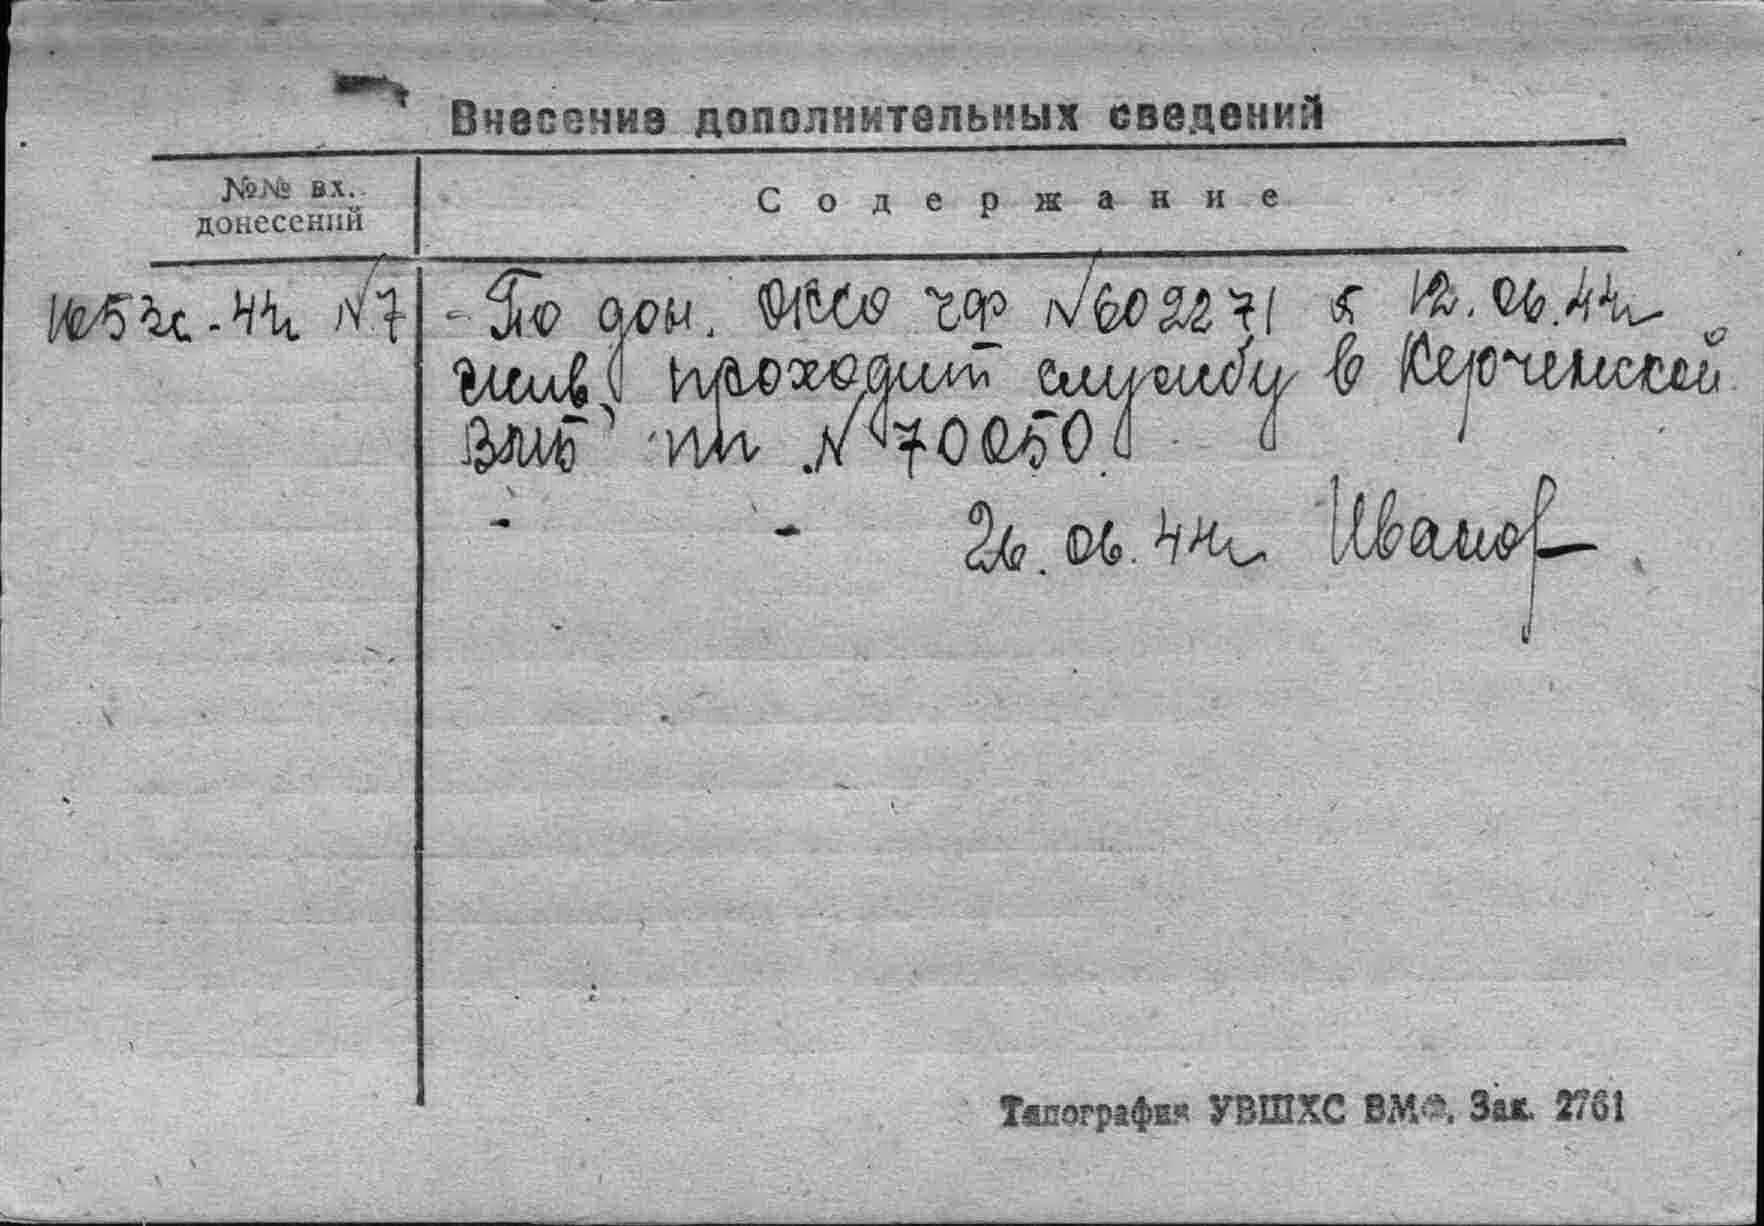 Внесение дополнительных сведений
№№ вх. донесений
Содержание
1053с-44г №7
- По дон. ОКСО ЧФ №602271 от 12.06.44г
жив, проходит службу в Керченской
ВМБ пп №70050.
- - 26.06.44г Иванов
Типография УВШХС ВМФ. Зак. 2761